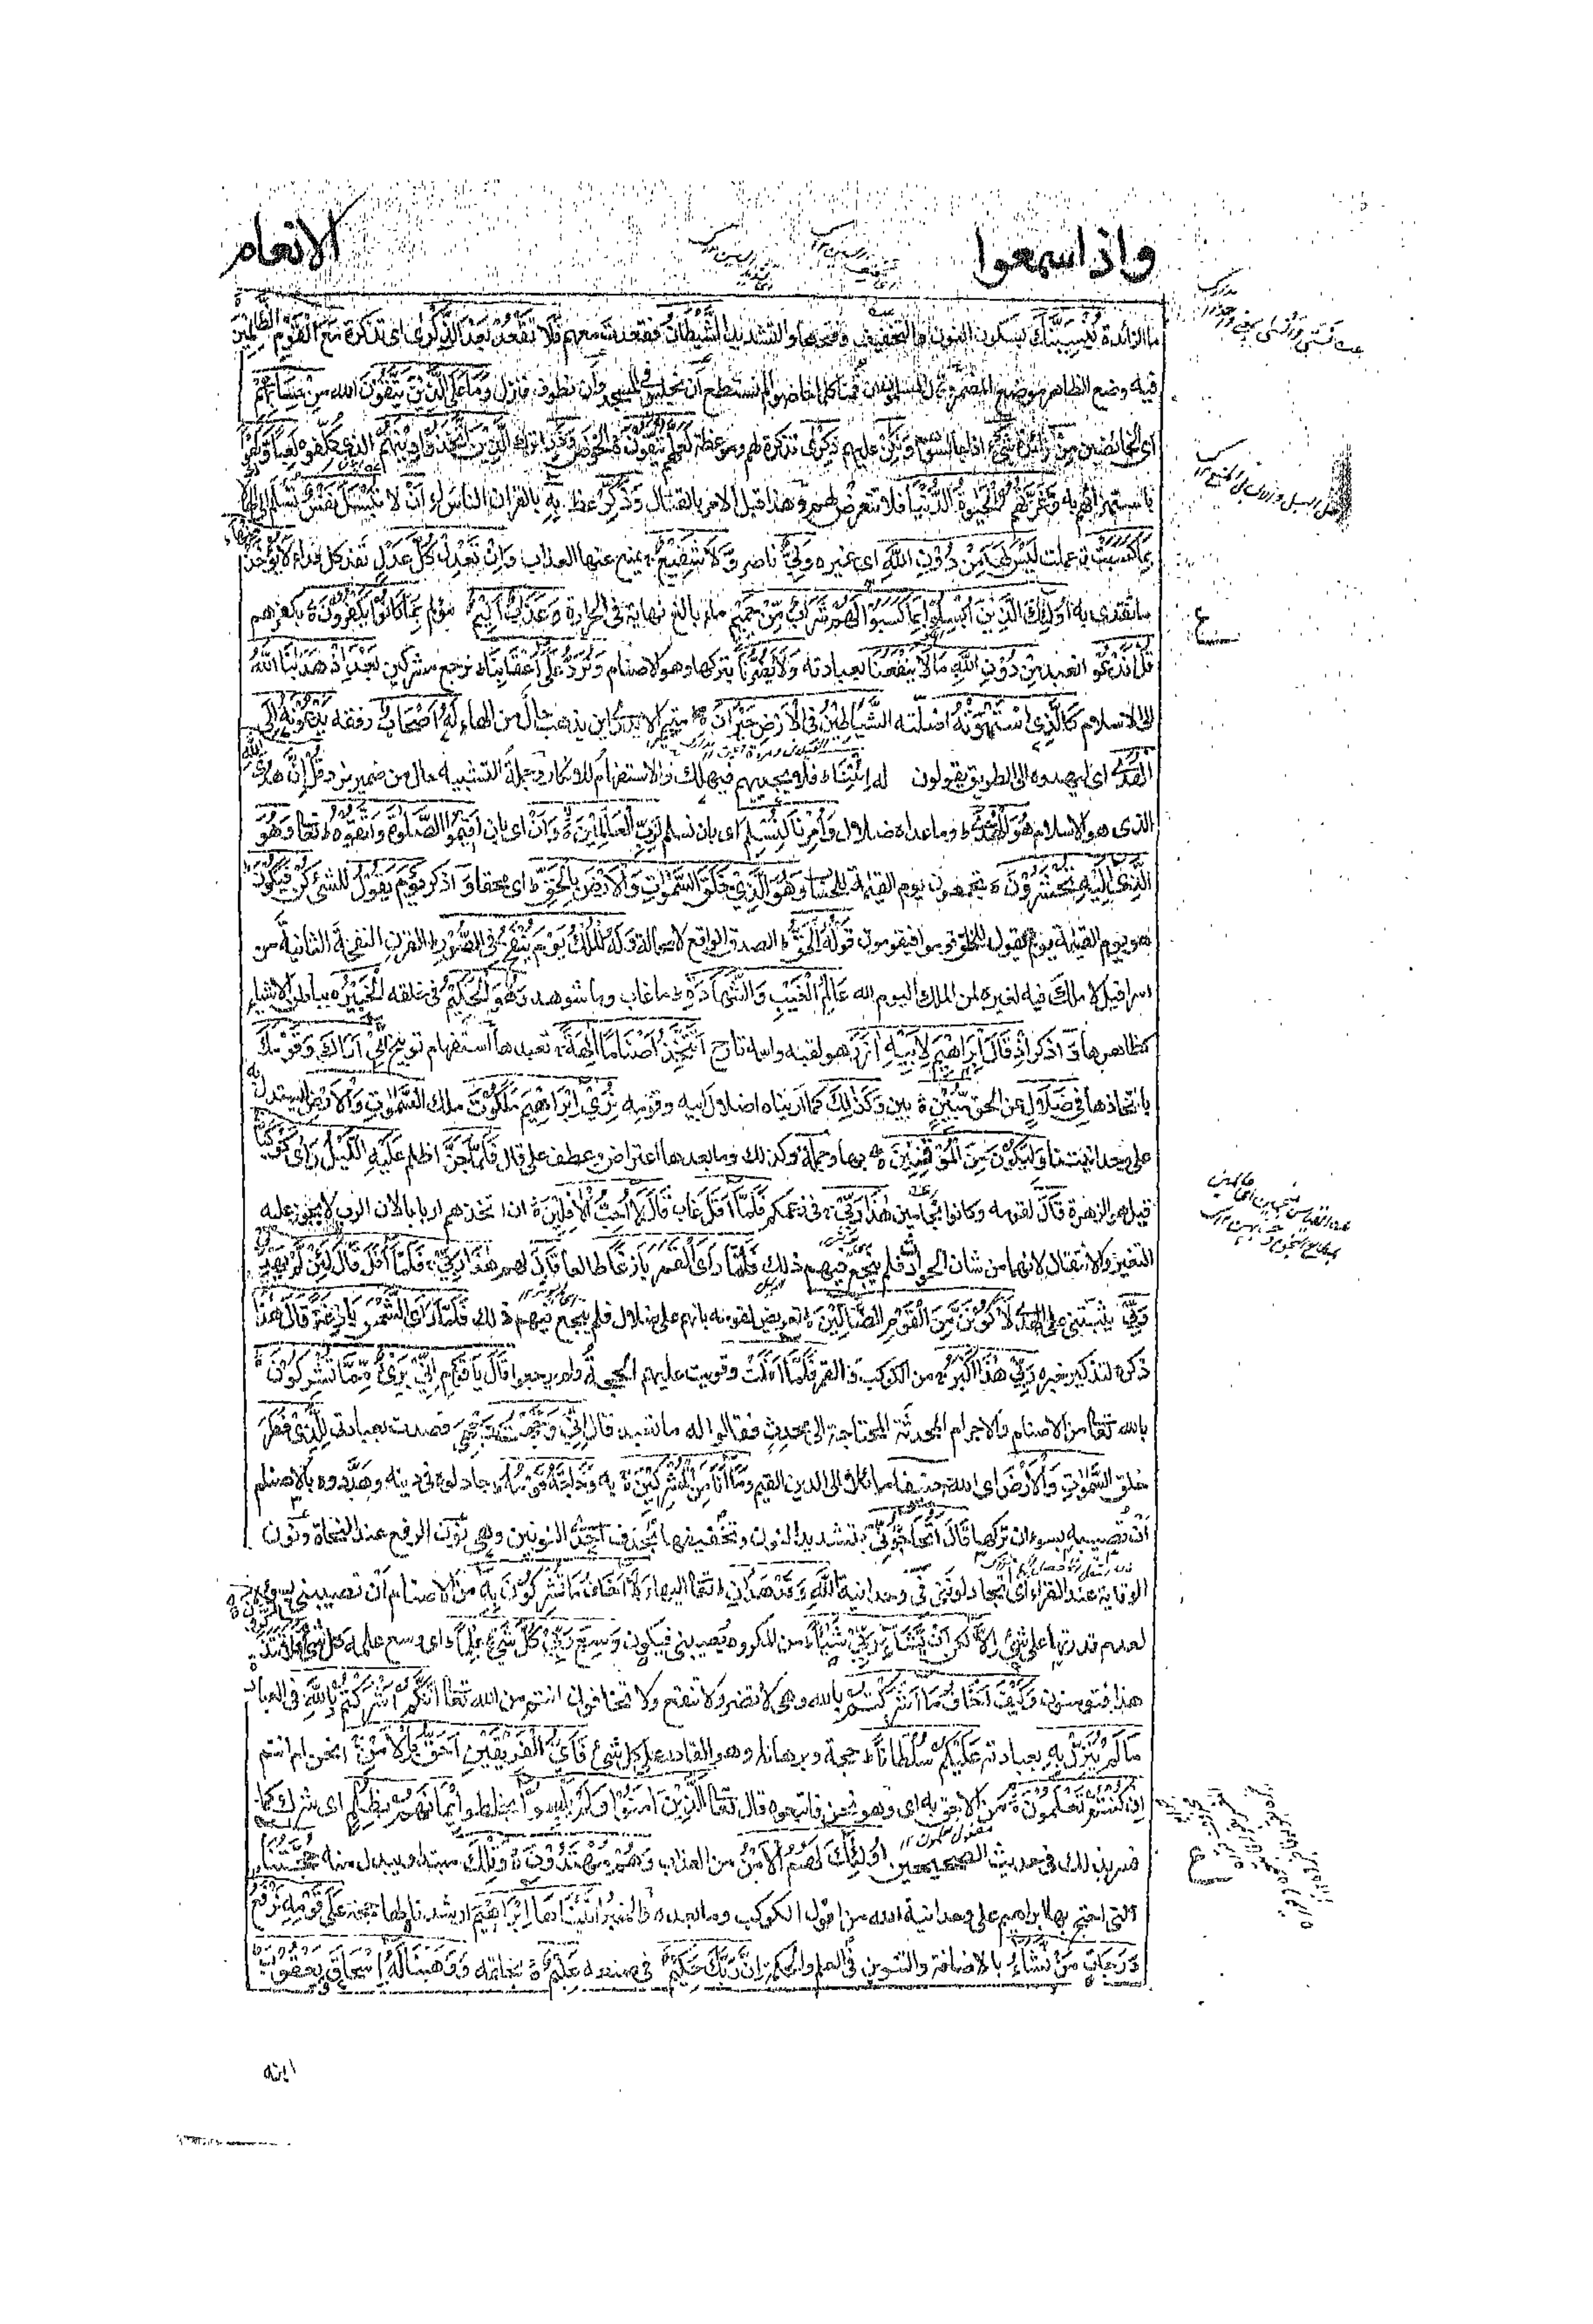 واذا سمعوا
الانعام
ما الزائدة يُنْسِيَنَّكَ بسكون النون والتخفيف وفتحها والتشديد الشَّيْطَانُ فقعدت معهم فَلَا تَقْعُدْ بَعْدَ الذِّكْرٰى اى تذكرة مَعَ الْقَوْمِ الظَّالِمِيْنَ
فيه وضع الظاهر موضع المضمر وقال المسلمون ان قمنا كلما خاضوا لم نستطع ان نجلس فى المسجد وان نطوف فنزل وَمَا عَلَى الَّذِيْنَ يَتَّقُوْنَ الله مِنْ حِسَابِهِمْ
اى الخائضين مِنْ زائدة شَيْءٍ اذا جالسوهم وَلٰكِنْ عليهم ذِكْرٰى تذكرة لهم وموعظة لَعَلَّهُمْ يَتَّقُوْنَ الخوض وَذَرِ اترك الَّذِيْنَ اتَّخَذُوْا دِيْنَهُمْ الذى كلفوه لَعِبًا وَّلَهْوًا
باستهزائهم به وَغَرَّتْهُمُ الْحَيٰوةُ الدُّنْيَا فلا تتعرض لهم وهذا قبل الامر بالقتال وَذَكِّرْ عظ بِهٖ بالقران الناس ل اَنْ لا تُبْسَلَ نَفْسٌ تسلم الى الهلاك
بِمَا كَسَبَتْ عملت لَيْسَ لَهَا مِنْ دُوْنِ اللهِ اى غيره وَلِيٌّ ناصر وَّلَا شَفِيْعٌ يمنع عنها العذاب وَاِنْ تَعْدِلْ كُلَّ عَدْلٍ تفد كل فداء لَّا يُؤْخَذْ مِنْهَا
ما تفتدى به اُولٰئِكَ الَّذِيْنَ اُبْسِلُوْا بِمَا كَسَبُوْا لَهُمْ شَرَابٌ مِّنْ حَمِيْمٍ ماء بالغ نهاية فى الحرارة وَعَذَابٌ اَلِيْمٌ مؤلم بِمَا كَانُوْا يَكْفُرُوْنَ بكفرهم
قُلْ اَنَدْعُوْا انعبد مِنْ دُوْنِ اللهِ مَا لَا يَنْفَعُنَا بعبادته وَلَا يَضُرُّنَا بتركها وهو الاصنام وَنُرَدُّ عَلٰى اَعْقَابِنَا نرجع مشركين بَعْدَ اِذْ هَدٰنَا اللهُ
الى الاسلام كَالَّذِى اسْتَهْوَتْهُ اضلته الشَّيَاطِيْنُ فِى الْاَرْضِ حَيْرَانَ متحيرا لا يدرى اين يذهب حال من الهاء لَهٗ اَصْحَابٌ رفقة يَدْعُوْنَهٗ اِلَى
الْهُدَى اى ليهدوه الى الطريق يقولون له ائْتِنَا فلا يجيبهم فيهلك والاستفهام للانكار وجملة التشبيه حال من ضمير نرد قُلْ اِنَّ هُدَى اللهِ
الذى هو الاسلام هُوَ الْهُدٰى وما عداه ضلال وَاُمِرْنَا لِنُسْلِمَ اى بان نسلم لِرَبِّ الْعَالَمِيْنَ وَاَنْ اى بان اَقِيْمُوا الصَّلٰوةَ وَاتَّقُوْهُ تعا وَهُوَ
الَّذِى اِلَيْهِ تُحْشَرُوْنَ تجمعون يوم القيمة للحساب وَهُوَ الَّذِيْ خَلَقَ السَّمٰوٰتِ وَالْاَرْضَ بِالْحَقِّ اى محقا وَ اذكر يَوْمَ يَقُوْلُ للشئ كُنْ فَيَكُوْنُ
هو يوم القيمة يوم يقول للخلق قوموا فيقومون قَوْلُهُ الْحَقُّ الصدق الواقع لا محالة وَلَهُ الْمُلْكُ يَوْمَ يُنْفَخُ فِى الصُّوْرِ القرن النفخة الثانية من
اسرافيل لا ملك فيه لغيره لمن الملك اليوم لله عَالِمُ الْغَيْبِ وَالشَّهَادَةِ ما غاب وما شوهد وَهُوَ الْحَكِيْمُ فى خلقه الْخَبِيْرُ بباطن الاشياء
كظاهرها وَ اذكر اِذْ قَالَ اِبْرَاهِيْمُ لِاَبِيْهِ اٰزَرَ هو لقبه واسمه تارح اَتَتَّخِذُ اَصْنَامًا اٰلِهَةً تعبدها استفهام توبيخ اِنِّيْ اَرٰكَ وَقَوْمَكَ
باتخاذها فِيْ ضَلَالٍ عن الحق مُّبِيْنٍ بين وَكَذٰلِكَ كما اريناه اضلال ابيه وقومه نُرِيْ اِبْرَاهِيْمَ مَلَكُوْتَ ملك السَّمٰوٰتِ وَالْاَرْضِ ليستدل به
على وحدانيتنا وَلِيَكُوْنَ مِنَ الْمُوْقِنِيْنَ بها وجملة وكذلك وما بعدها اعتراض وعطف على قال فَلَمَّا جَنَّ اظلم عَلَيْهِ اللَّيْلُ رَاٰى كَوْكَبًا
قيل هو الزهرة قَالَ لقومه وكانوا نجامين هٰذَا رَبِّيْ فى زعمكم فَلَمَّا اَفَلَ غاب قَالَ لَا اُحِبُّ الْاٰفِلِيْنَ ان اتخذهم اربابا لان الرب لا يجوز عليه
التغير والانتقال لانهما من شان الحوادث فلم ينجع فيهم ذلك فَلَمَّا رَاَى الْقَمَرَ بَازِغًا طالعا قَالَ لهم هٰذَا رَبِّيْ فَلَمَّا اَفَلَ قَالَ لَئِنْ لَّمْ يَهْدِنِيْ
رَبِّيْ يثبتنى على الهدى لَاَكُوْنَنَّ مِنَ الْقَوْمِ الضَّالِّيْنَ تعريض لقومه بانهم على ضلال فلم ينجع فيهم ذلك فَلَمَّا رَاَى الشَّمْسَ بَازِغَةً قَالَ هٰذَا
ذكره لتذكير خبره رَبِّيْ هٰذَا اَكْبَرُ من الكوكب والقمر فَلَمَّا اَفَلَتْ وقويت عليهم الحجة ولم يرجعوا قَالَ يَا قَوْمِ اِنِّيْ بَرِيْءٌ مِّمَّا تُشْرِكُوْنَ
بالله تعا من الاصنام والاجرام المحدثة المحتاجة الى محدث فقالوا له ما تعبد قال اِنِّيْ وَجَّهْتُ وَجْهِيَ قصدت بعبادتى لِلَّذِيْ فَطَرَ
خلق السَّمٰوٰتِ وَالْاَرْضَ اى الله حَنِيْفًا مائلا الى الدين القيم وَمَا اَنَا مِنَ الْمُشْرِكِيْنَ به وَحَاجَّهٗ قَوْمُهٗ جادلوه فى دينه وهددوه بالاصنام
ان تصيبه بسوء ان تركها قَالَ اَتُحَاجُّوْنِّيْ بتشديد النون وتخفيفها بحذف احدى النونين وهى نون الرفع عند النحاة ونون
الوقاية عند القراء اى اتجادلوننى فى وحدانية اللهِ وَقَدْ هَدٰنِ تعا اليها وَلَا اَخَافُ مَا تُشْرِكُوْنَ بِهٖ من الاصنام ان تصيبنى بسوء
لعدم قدرتها على شئ اِلَّا لكن اَنْ يَّشَاءَ رَبِّيْ شَيْئًا من المكروه يصيبنى فيكون وَسِعَ رَبِّيْ كُلَّ شَيْءٍ عِلْمًا اى وسع علمه كل شئ اَفَلَا تَتَذَكَّرُوْنَ
هذا فتؤمنون وَكَيْفَ اَخَافُ مَا اَشْرَكْتُمْ بالله وهى لا تضر ولا تنفع وَلَا تَخَافُوْنَ انتم من الله تعا اَنَّكُمْ اَشْرَكْتُمْ بِاللهِ فى العبادة
مَا لَمْ يُنَزِّلْ بِهٖ بعبادته عَلَيْكُمْ سُلْطَانًا حجة وبرهانا وهو القادر على كل شئ فَاَيُّ الْفَرِيْقَيْنِ اَحَقُّ بِالْاَمْنِ انحن ام انتم
اِنْ كُنْتُمْ تَعْلَمُوْنَ من الاحق به اى وهو نحن فاتبعوه قال تعا اَلَّذِيْنَ اٰمَنُوْا وَلَمْ يَلْبِسُوْا يخلطوا اِيْمَانَهُمْ بِظُلْمٍ اى شرك كما
فسر بذلك فى حديث الصحيحين اُولٰئِكَ لَهُمُ الْاَمْنُ من العذاب وَهُمْ مُّهْتَدُوْنَ وَتِلْكَ مبتدا ويبدل منه حُجَّتُنَا
التى احتج بها ابراهيم على وحدانية الله من افول الكوكب وما بعده والخبر اٰتَيْنَاهَا اِبْرَاهِيْمَ ارشدناه لها حجة عَلٰى قَوْمِهٖ نَرْفَعُ
دَرَجَاتٍ مَّنْ نَّشَاءُ بالاضافة والتنوين فى العلم والحكمة اِنَّ رَبَّكَ حَكِيْمٌ فى صنعه عَلِيْمٌ بخلقه وَوَهَبْنَا لَهٗ اِسْحَاقَ وَيَعْقُوْبَ
ابنه